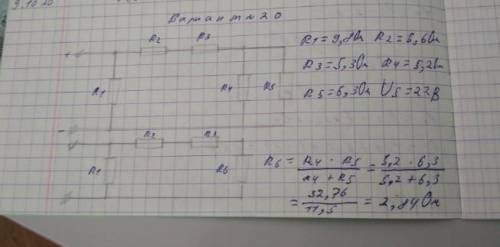 9.10.20
Вариант 20
R2 R3
+
R1 R4 R5
-
R1 = 9,8 Ом R2 = 6,6 Ом
R3 = 5,3 Ом R4 = 5,2 Ом
R5 = 6,3 Ом U5 = 22 В
R2 R3
R1 R6
R6 = R4 · R5 / R4 + R5 = 5,2 · 6,3 / 5,2 + 6,3
= 32,76 / 11,5 = 2,84 Ом